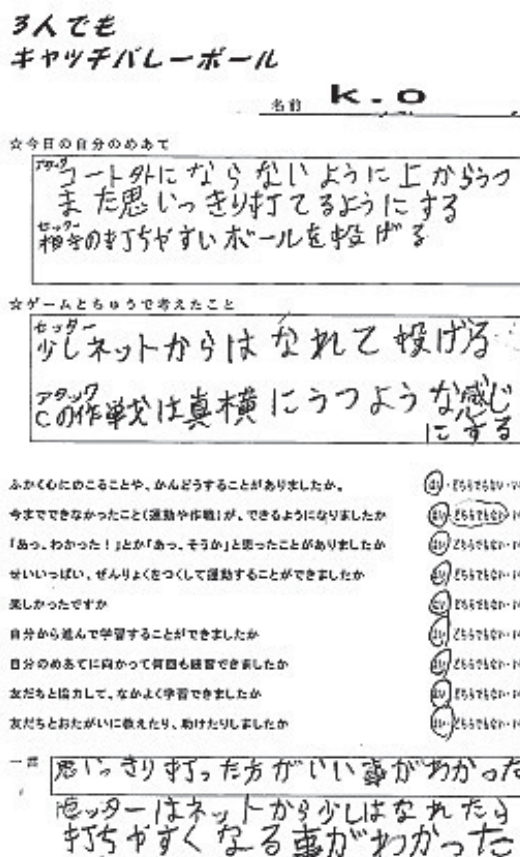 3人でも
キャッチバレーボール
名前 K.O
☆今日の自分のめあて
アタック
コート外にならないように上からうつ
また思いっきり打てるようにする
セッター
相手の打ちやすいボールを投げる
☆ゲームとちゅうで考えたこと
セッター
少しネットからはなれて投げる
アタック
Cの作戦は真横にうつような感じ
にする
ふかく心にのこることや、かんどうすることがありましたか。 はい・どちらでもない・
今までできなかったこと(運動や作戦)が、できるようになりましたか はい・どちらでもない・
「あっ、わかった!」とか「あっ、そうか」と思ったことがありましたか はい・どちらでもない・
せいいっぱい、ぜんりょくをつくして運動することができましたか はい・どちらでもない・
楽しかったですか はい・どちらでもない・
自分から進んで学習することができましたか はい・どちらでもない・
自分のめあてに向かって何回も練習できましたか はい・どちらでもない・
友だちと協力して、なかよく学習できましたか はい・どちらでもない・
友だちとおたがいに教えたり、助けたりしましたか はい・どちらでもない・
一言 思いっきり打った方がいい事がわかった
セッターはネットから少しはなれたら
打ちやすくなる事がわかった